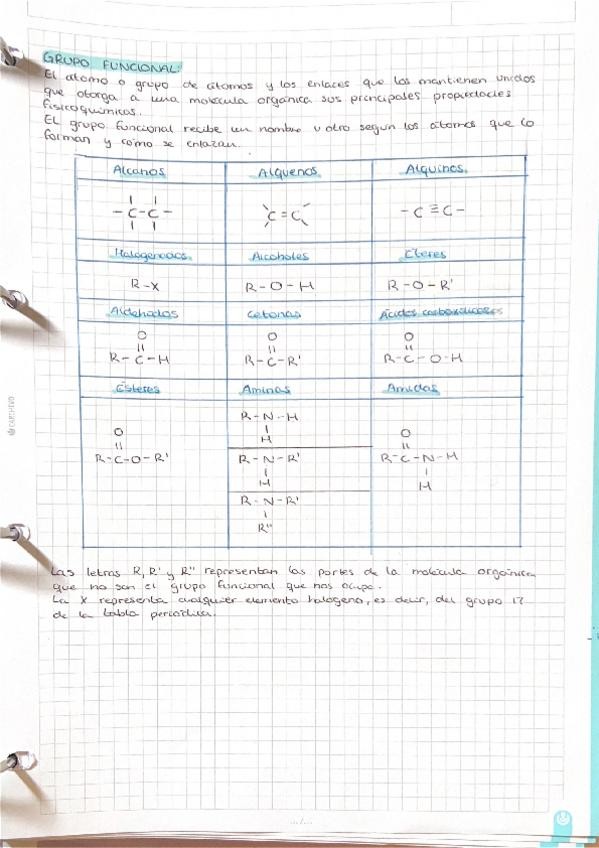 GRUPO FUNCIONAL:
El átomo o grupo de átomos y los enlaces que los mantienen unidos
que otorga a una molécula orgánica sus principales propiedades
fisicoquímicas.
El grupo funcional recibe un nombre u otro según los átomos que lo
forman y cómo se enlazan.
Alcanos Alquenos Alquinos
-C-C- C=C -C≡C-
Halogenados Alcoholes Éteres
R-X R-O-H R-O-R'
Aldehídos Cetonas Ácidos carboxílicos
O O O
R-C-H R-C-R' R-C-O-H
Ésteres Aminas Amidas
R-N-H
H
O O
R-C-O-R' R-N-R' R-C-N-H
H H
R-N-R'
R"
Las letras R, R' y R" representan las partes de la molécula orgánica
que no son el grupo funcional que nos ocupa.
La X representa cualquier elemento halógeno, es decir, del grupo 17
de la tabla periódica.